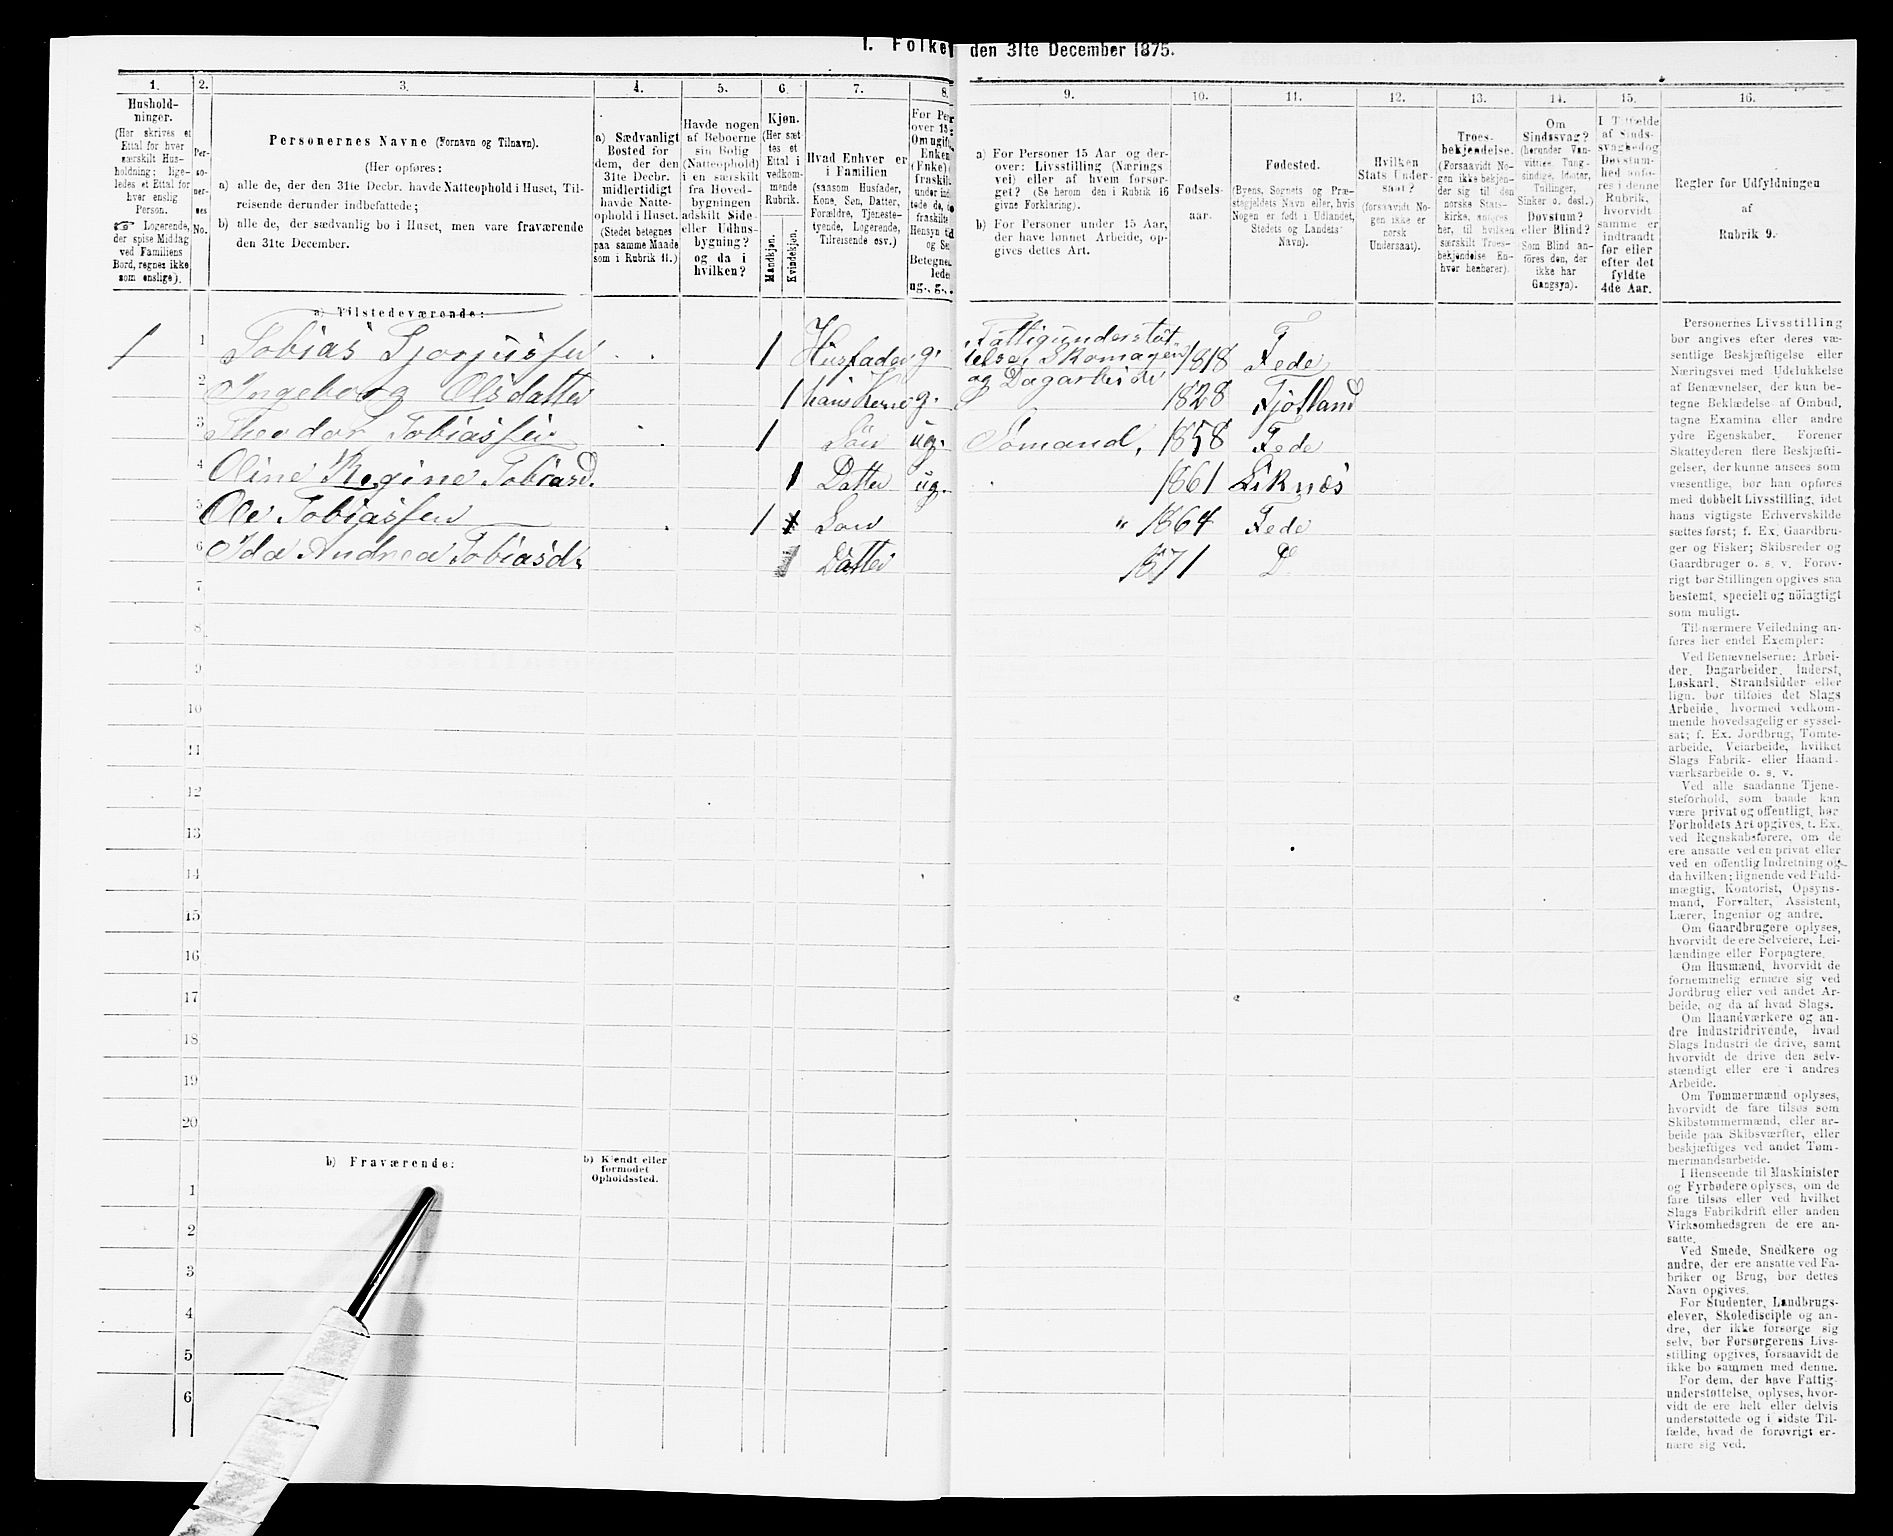 I. Folke den 31te December 1875.
1. 2. 3. 4. 5. 6. 7. 8. 9. 10. 11. 12. 13. 14. 15. 16.
Hushold-
ninger.
(Her skrives et
Ettal for hver
særskilt Hus-
holdning; lige-
ledes et Ettal for
hver enslig
Person.
☞ Logerende,
der spise Middag
ved Familiens
Bord, regnes ikke
som enslige).
Per-
so-
ner-
nes
No.
Personernes Navne (Fornavn og Tilnavn).
(Her opføres:
a) alle de, der den 31te Decbr. havde Natteophold i Huset, Til-
reisende derunder indbefattede;
b) alle de, der sædvanlig bo i Huset, men vare fraværende
den 31te December.
a) Sædvanligt
Bosted for
dem, der den
31te Decbr.
midlertidigt
havde Natte-
ophold i Huset.
(Stedet betegnes
paa samme Maade
som i Rubrik 11.)
Havde nogen
af Beboerne
sin Bolig
(Natteophold)
i en særskilt
fra Hoved-
bygningen
adskilt Side-
eller Udhus-
bygning?
og da i
hvilken?
Kjøn.
(Her sæt-
tes et
Ettal i
vedkom-
mende
Rubrik.
Mandkjøn.
Kvindekjøn.
Hvad Enhver er
i Familien
(saasom Husfader,
Kone, Søn, Datter,
Forældre, Tjeneste-
tyende, Logerende,
Tilreisende osv.)
For Per
over 15
Om ugift
Enken
(Enke)
fraskil
under ind
tede de,
fraskilte
Hensyn til
og Se
Betegne
lede
ug., g.,
a) For Personer 15 Aar og der-
over: Livsstilling (Nærings-
vei) eller af hvem forsør-
get? (Se herom den i Rubrik 16
givne Forklaring).
b) For Personer under 15 Aar,
der have lønnet Arbeide, op-
gives dettes Art.
Fødsels-
aar.
Fødested.
(Byens, Sognets og Præ-
stegjeldets Navn eller, hvis
Nogen er født i Udlandet,
Stedets og Landets
Navn).
Hvilken
Stats Under-
saat?
(forsaavidt No-
gen ikke er
norsk
Undersaat).
Troes-
bekjendelse.
(Forsaavidt No-
gen ikke bekjen-
der sig til den
norske Stats-
kirke, anføres
her, til hvilken
særskilt Troes-
bekjendelse En-
hver henhører).
Om
Sindssvag?
(herunder Van-
vittige, Tung-
sindige, Idioter,
Tullinger,
Sinker o. desl.)
Døvstum?
eller Blind?
(Som Blind an-
føres den, der
ikke har
Gangsyn).
I Tilfælde
af Sinds-
svaghed og
Døvstum-
hed anfø-
res i denne
Rubrik,
hvorvidt
samme er
indtraadt
før eller
efter det
fyldte
4de Aar.
Regler for Udfyldningen
af
Rubrik 9.
a) Tilstedeværende:
1 1 Tobias Sjorjussen 1 Husfader g. Fattigunderstøt
telse, Skomager
og Dagarbeide 1818 Fede
2 Ingeborg Olsdatter 1 hans Kone g. 1828 Fjotland
3 Theodor Tobiassen 1 Søn ug. Sømand, 1858 Fede
4 Oline Regine Tobiasd. 1 Datter ug. 1861 Liknes
5 Ole Tobiassen 1 Søn " 1864 Fede
6 Ida Andrea Tobiasd. 1 Datter 1871 D
7
8
9
10
11
12
13
14
15
16
17
18
19
20
b) Fraværende:
b) Kjendt eller
formodet
Opholdssted.
1
2
3
4
5
6
Personernes Livsstilling
bør angives efter deres væ-
sentlige Beskjæftigelse eller
Næringsvei med Udelukkelse
af Benævnelser, der kun be-
tegne Beklædelse af Ombud,
tagne Examina eller andre
ydre Egenskaber. Forener
Skatteyderen flere Beskjæfti-
gelser, der kunne ansees som
væsentlige, bør han opføres
med dobbelt Livsstilling, idet
hans vigtigste Erhvervskilde
sættes først; f. Ex. Gaardbru-
ger og Fisker; Skibsreder og
Gaardbruger o. s. v. Forøv-
rigt bør Stillingen opgives saa
bestemt, specielt og nöiagtigt
som muligt.
Til nærmere Veiledning an-
føres her endel Exempler:
Ved Benævnelserne: Arbei-
der, Dagarbeider, Inderst,
Løskarl, Strandsidder eller
lign. bør tilføies det Slags
Arbeide, hvormed vedkom-
mende hovedsagelig er syssel-
sat; f. Ex. Jordbrug, Tomte-
arbeide, Veiarbeide, hvilket
Slags Fabrik- eller Haand-
værksarbeide o. s. v.
Ved alle saadanne Tjene-
steforhold, som baade kan
være privat og offentligt, bør
Forholdets Art opgives, f. Ex.
ved Regnskabsførere, om de
ere ansatte ved en privat eller
ved en offentlig Indretning og
da hvilken; lignende ved Fuld-
mægtig, Kontorist, Opsyns-
mand, Forvalter, Assistent,
Lærer, Ingeniør og andre.
Om Gaardbrugere oplyses,
hvorvidt de ere Selveiere, Lei-
lændinge eller Forpagtere.
Om Husmænd, hvorvidt de
fornemmelig ernære sig ved
Jordbrug eller ved andet Ar-
beide, og da af hvad Slags.
Om Haandværkere og an-
dre Industridrivende, hvad
Slags Industri de drive, samt
hvorvidt de drive den selv-
stændigt eller ere i andres
Arbeide.
Om Tømmermænd oplyses,
hvorvidt de fare tilsøs som
Skibstømmermænd, eller ar-
beide paa Skibsværfter, eller
beskjæftiges ved andet Tøm-
mermandsarbeide.
I Henseende til Maskinister
og Fyrbødere oplyses, om de
fare tilsøs eller ved hvilket
Slags Fabrikdrift eller anden
Virksomhedsgren de ere an-
satte.
Ved Smede, Snedkere og
andre, der ere ansatte ved Fa-
briker og Brug, bør dettes
Navn opgives.
For Studenter, Landbrugs-
elever, Skoledisciple og an-
dre, der ikke forsørge sig
selv, bør Forsørgerens Livs-
stilling opgives, forsaavidt de
ikke bo sammen med denne.
For dem, der have Fattig-
understøttelse, oplyses, hvor-
vidt de ere helt eller delvis
understøttede og i sidste Til-
fælde, hvad de forøvrigt er-
nære sig ved.